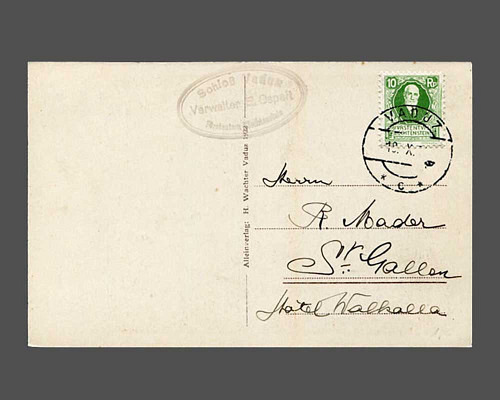 Schloß Vaduz
Verwalter E. Ospelt
10 Rp
FÜRSTENTUM
LIECHTENSTEIN
VADUZ
10. X.
* C *
Alleinverlag: H. Wachter Vadus
Herrn
R. Mader
St. Gallen
Hôtel Walhalla